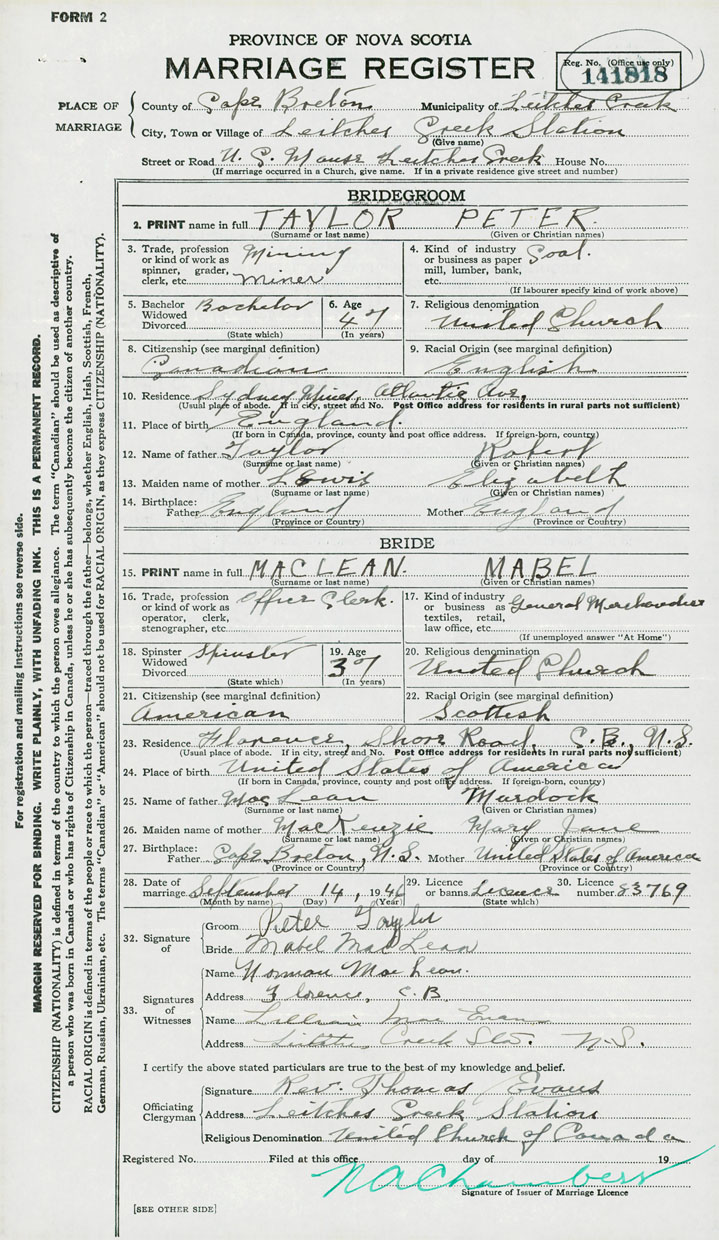 FORM 2
PROVINCE OF NOVA SCOTIA
MARRIAGE REGISTER
Reg. No. (Office use only)
141818
PLACE OF MARRIAGE
County of Cape Breton Municipality of Leitches Creek
City, Town or Village of Leitches Creek Station
(Give name)
Street or Road U. C. Manse Leitches Creek House No.
(If marriage occurred in a Church, give name. If in a private residence give street and number)
BRIDEGROOM
2. PRINT name in full TAYLOR PETER.
(Surname or last name) (Given or Christian names)
3. Trade, profession or kind of work as spinner, grader, clerk, etc. Mining Miner
4. Kind of industry or business as paper mill, lumber, bank, etc. Coal.
(If labourer specify kind of work above)
5. Bachelor Widowed Divorced Bachelor
(State which)
6. Age 47
(In years)
7. Religious denomination
United Church
8. Citizenship (see marginal definition)
Canadian
9. Racial Origin (see marginal definition)
English
10. Residence Sydney Mines, Atlantic Ave,
(Usual place of abode. If in city, street and No. Post Office address for residents in rural parts not sufficient)
11. Place of birth England.
(If born in Canada, province, county and post office address. If foreign-born, country)
12. Name of father Taylor Robert
(Surname or last name) (Given or Christian names)
13. Maiden name of mother Lewis Elizabeth
(Surname or last name) (Given or Christian names)
14. Birthplace:
Father England Mother England
(Province or Country) (Province or Country)
BRIDE
15. PRINT name in full MACLEAN. MABEL
(Surname or last name) (Given or Christian names)
16. Trade, profession or kind of work as operator, clerk, stenographer, etc. Office Clerk.
17. Kind of industry or business as textiles, retail, law office, etc. General Merchandise
(If unemployed answer "At Home")
18. Spinster Widowed Divorced Spinster
(State which)
19. Age 37
(In years)
20. Religious denomination
United Church
21. Citizenship (see marginal definition)
American
22. Racial Origin (see marginal definition)
Scottish
23. Residence Florence, Shore Road, C.B., N.S.
(Usual place of abode. If in city, street and No. Post Office address for residents in rural parts not sufficient)
24. Place of birth United States of America
(If born in Canada, province, county and post office address. If foreign-born, country)
25. Name of father MacLean Murdock
(Surname or last name) (Given or Christian names)
26. Maiden name of mother MacKenzie Mary Jane
(Surname or last name) (Given or Christian names)
27. Birthplace:
Father Cape Breton, N.S. Mother United States of America
(Province or Country) (Province or Country)
28. Date of marriage September 14, 1946
(Month by name) (Day) (Year)
29. Licence or banns Licence
(State which)
30. Licence number 83769
32. Signature of
Groom Peter Taylor
Bride Mabel MacLean
33. Signatures of Witnesses
Name Norman MacLean.
Address Florence, C.B.
Name Lillian Mac
Address Leitches Creek Sta. N.S.
I certify the above stated particulars are true to the best of my knowledge and belief.
Officiating Clergyman
Signature Rev. Thomas Evans
Address Leitches Creek Station
Religious Denomination United Church of Canada
Registered No. Filed at this office day of 19
N A Chambers
Signature of Issuer of Marriage Licence
[SEE OTHER SIDE]
For registration and mailing instructions see reverse side.
MARGIN RESERVED FOR BINDING. WRITE PLAINLY, WITH UNFADING INK. THIS IS A PERMANENT RECORD.
CITIZENSHIP (NATIONALITY) is defined in terms of the country to which the person owes allegiance. The term "Canadian" should be used as descriptive of
a person who was born in Canada or who has rights of Citizenship in Canada, unless he or she has subsequently become the citizen of another country.
RACIAL ORIGIN is defined in terms of the people or race to which the person—traced through the father—belongs, whether English, Irish, Scottish, French,
German, Russian, Ukrainian, etc. The terms "Canadian" or "American" should not be used for RACIAL ORIGIN, as they express CITIZENSHIP (NATIONALITY).